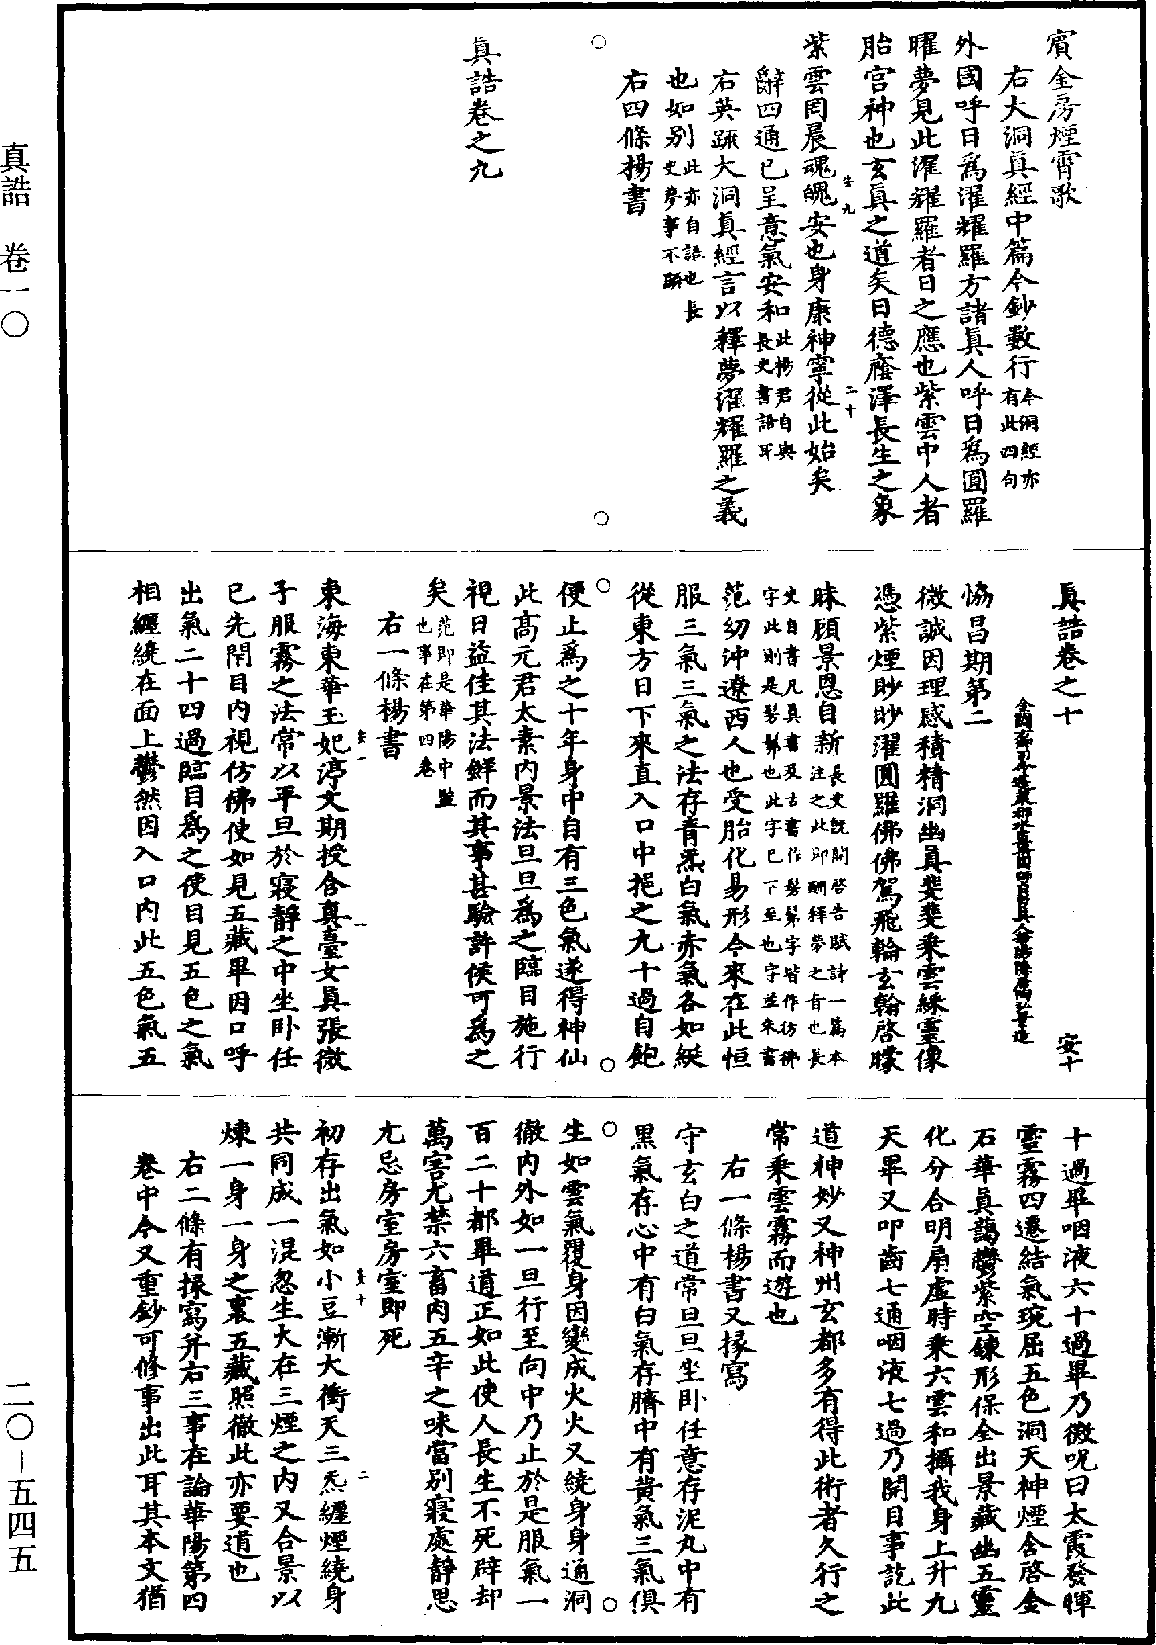 賓金房煙霄歌
右大洞真經中篇今鈔數行今洞經亦有此四句
外國呼日為濯耀羅方諸真人呼日為圓羅
曜夢見此濯耀羅者日之應也紫雲中人者
胎宮神也玄真之道矣日德廕澤長生之象
安九 二十
紫雲罔晨魂魄安也身康神寧從此始矣
辭四通已呈意氣安和此楊君自與長史書語耳
右英疏大洞真經言以釋夢濯耀羅之義
也如別此亦自語也長史夢事不顯
右四條楊書
真誥卷之九
真誥卷之十 安十
金闕右卿司命蓬萊都水監梁國師貞白真人華陽隱居陶弘景造
協昌期第二
微誠因理感積精洞幽真斐斐乘雲綵靈像
憑紫煙眇眇濯圓羅佛佛駕飛輪玄翰啓矇
昧願景恩自新長史既聞啓告賦詩一篇本注之此即酬釋夢之旨也長史自書凡真書及古書作髣髴字皆作彷彿字此則是髣髴也此字已下至也字並朱書
范幼沖遼西人也受胎化易形今來在此恒
服三氣三氣之法存青炁白氣赤氣各如綖
從東方日下來直入口中挹之九十過自飽
便止為之十年身中自有三色氣遂得神仙
此高元君太素內景法旦旦為之臨目施行
視日益佳其法鮮而其事甚驗許侯可為之
矣范即是華陽中監也事在第四卷
右一條楊書
安一 一
東海東華玉妃淳文期授含真臺女真張微
子服霧之法常以平旦於寢靜之中坐臥任
己先閉目內視仿佛使如見五藏畢因口呼
出氣二十四過臨目為之使目見五色之氣
相纏繞在面上鬱然因入口內此五色氣五
十過畢咽液六十過畢乃微呪曰太霞發暉
靈霧四遷結氣琬屈五色洞天神煙含啓金
石華真藹鬱紫空鍊形保全出景藏幽五靈
化分合明扇虛時乘六雲和攝我身上升九
天畢又叩齒七通咽液七過乃開目事訖此
道神妙又神州玄都多有得此術者久行之
常乘雲霧而遊也
右一條楊書又掾寫
守玄白之道常旦旦坐臥任意存泥丸中有
黑氣存心中有白氣存臍中有黃氣三氣俱
生如雲氣覆身因變成火火又繞身身通洞
徹內外如一旦行至向中乃止於是服氣一
百二十都畢道正如此使人長生不死辟却
萬害尤禁六畜肉五辛之味當別寢處靜思
尤忌房室房室即死
安十 二
初存出氣如小豆漸大衝天三炁纏煙繞身
共同成一混忽生大在三煙之內又合景以
煉一身一身之裏五藏照徹此亦要道也
右二條有掾寫并右三事在論華陽第四
卷中今又重鈔可修事出此耳其本文猶
真誥 卷一〇
二〇—五四五